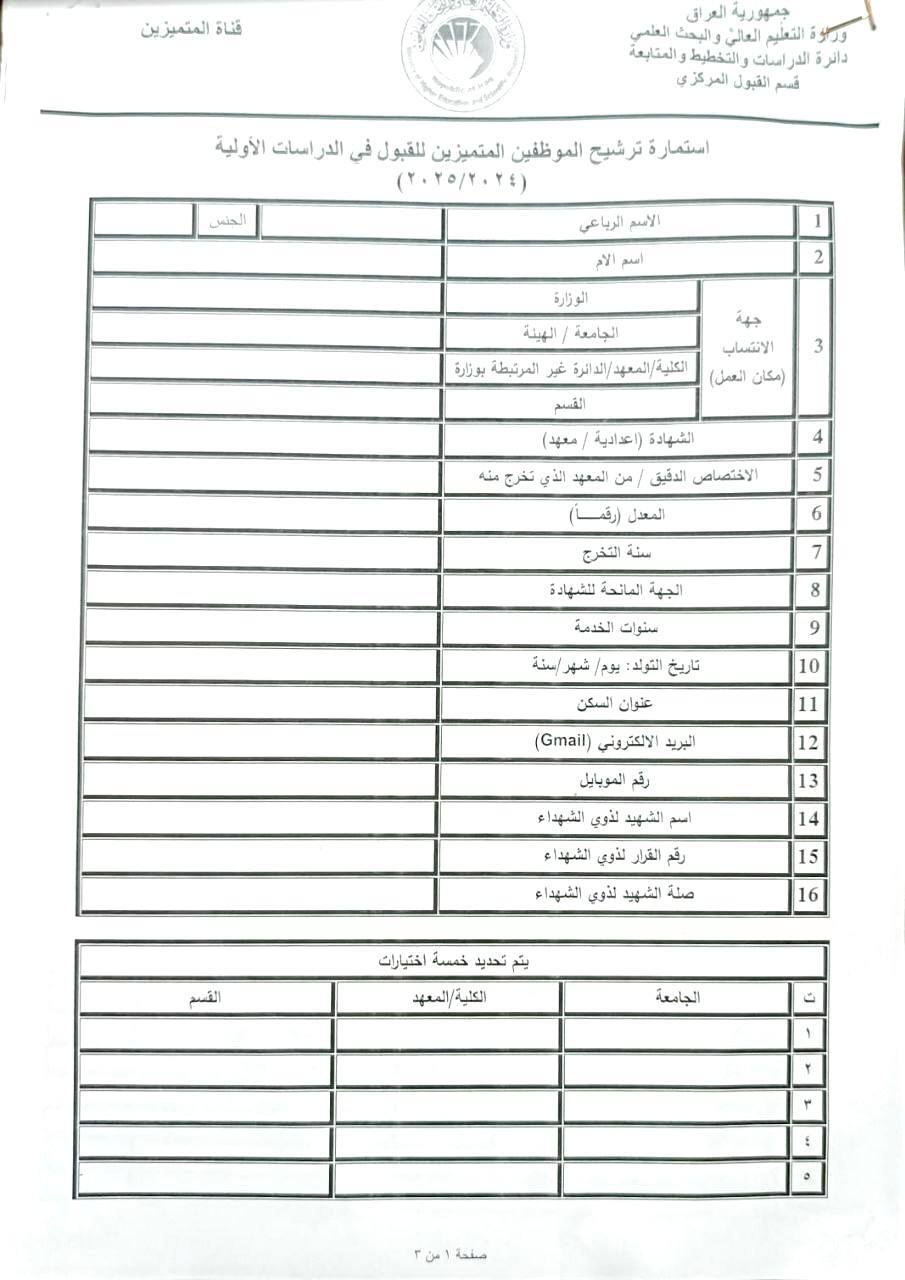 جمهورية العراق
وزارة التعليم العالي والبحث العلمي
دائرة الدراسات والتخطيط والمتابعة
قسم القبول المركزي
قناة المتميزين
استمارة ترشيح الموظفين المتميزين للقبول في الدراسات الأولية
(٢٠٢٥/٢٠٢٤)
1 الاسم الرباعي الجنس
2 اسم الام
3 جهة الانتساب (مكان العمل)
الوزارة
الجامعة / الهيئة
الكلية/المعهد/الدائرة غير المرتبطة بوزارة
القسم
4 الشهادة (اعدادية / معهد)
5 الاختصاص الدقيق / من المعهد الذي تخرج منه
6 المعدل (رقمـــاً)
7 سنة التخرج
8 الجهة المانحة للشهادة
9 سنوات الخدمة
10 تاريخ التولد: يوم/ شهر/سنة
11 عنوان السكن
12 البريد الالكتروني (Gmail)
13 رقم الموبايل
14 اسم الشهيد لذوي الشهداء
15 رقم القرار لذوي الشهداء
16 صلة الشهيد لذوي الشهداء
يتم تحديد خمسة اختيارات
ت الجامعة الكلية/المعهد القسم
١
٢
٣
٤
٥
صفحة ١ من ٣